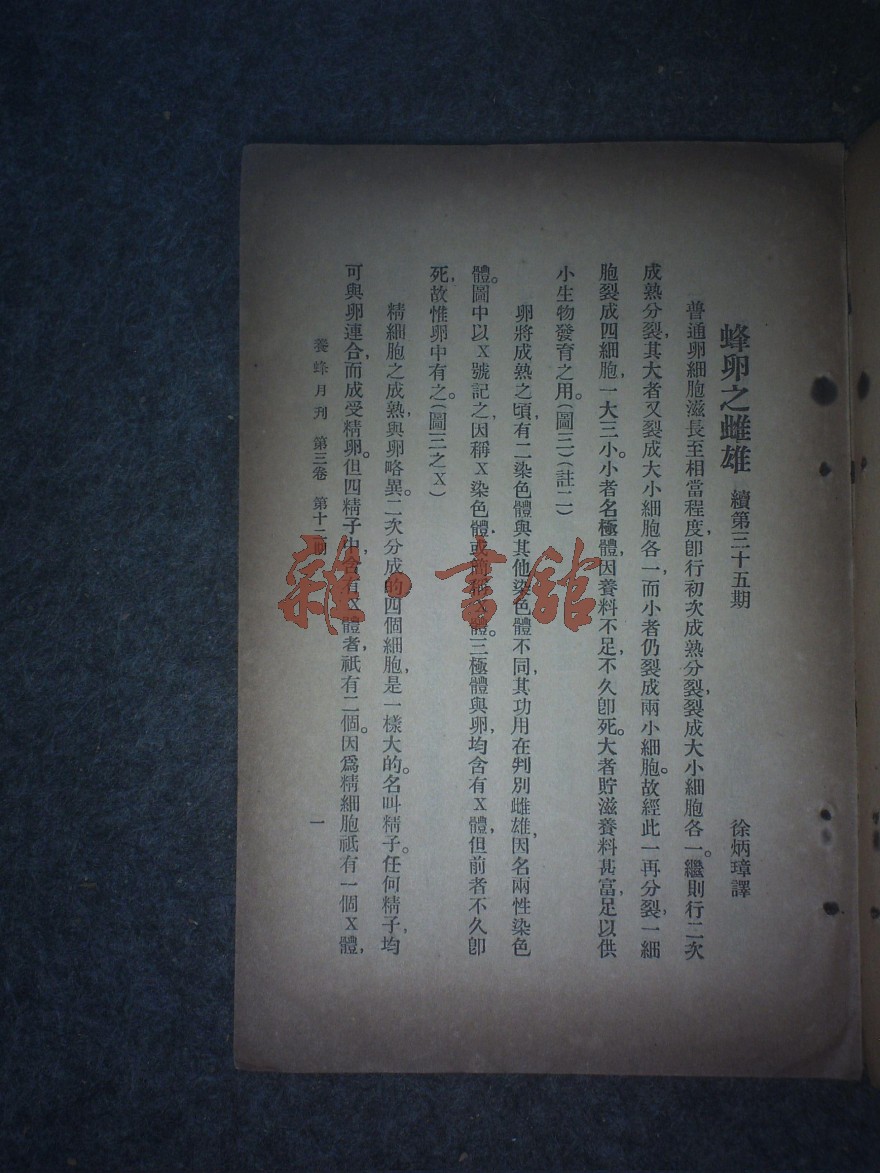 蜂卵之雌雄 續第三十五期 徐炳璋譯
普通卵細胞滋長至相當程度,卽行初次成熟分裂,裂成大小細胞各一。繼則行二次
成熟分裂,其大者又裂成大小細胞各一,而小者仍裂成兩小細胞。故經此一再分裂,一細
胞裂成四細胞,一大三小。小者名極體,因養料不足,不久卽死。大者貯滋養料甚富,足以供
小生物發育之用。(圖三)(註二)
卵將成熟之頃,有二染色體與其他染色體不同,其功用在判別雌雄,因名兩性染色
體。圖中以X號記之,因稱X染色體,或簡稱X體。三極體與卵,均含有X體,但前者不久卽
死,故惟卵中有之。(圖三之X)
精細胞之成熟,與卵略異。二次分成的四個細胞,是一樣大的,名叫精子。任何精子,均
可與卵連合,而成受精卵。但四精子中,含有X體者,祇有二個。因爲精細胞祇有一個X體,
養蜂月刊 第三卷 第十二期 一
雜·書館